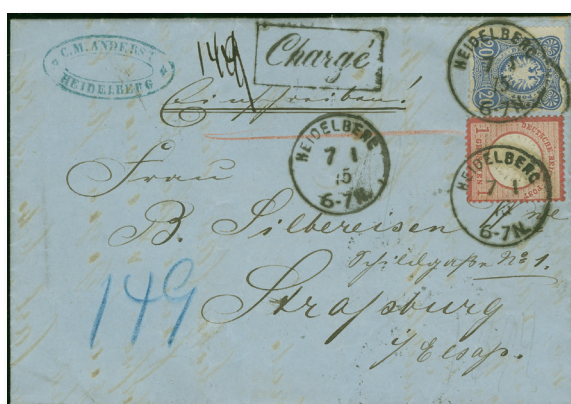 C. M. ANDERST
HEIDELBERG
149
Chargé
Einschreiben!
HEIDELBERG
7 1
75
6-7N.
20 20
HEIDELBERG
7 1
75
6-7N.
DEUTSCHE REICHS POST
1 GROSCHEN 1
HEIDELBERG
7 1
75
6-7N.
Frau
B. Silbereisen
Schildgaße No 1.
149
Straßburg
i/Elsaß.